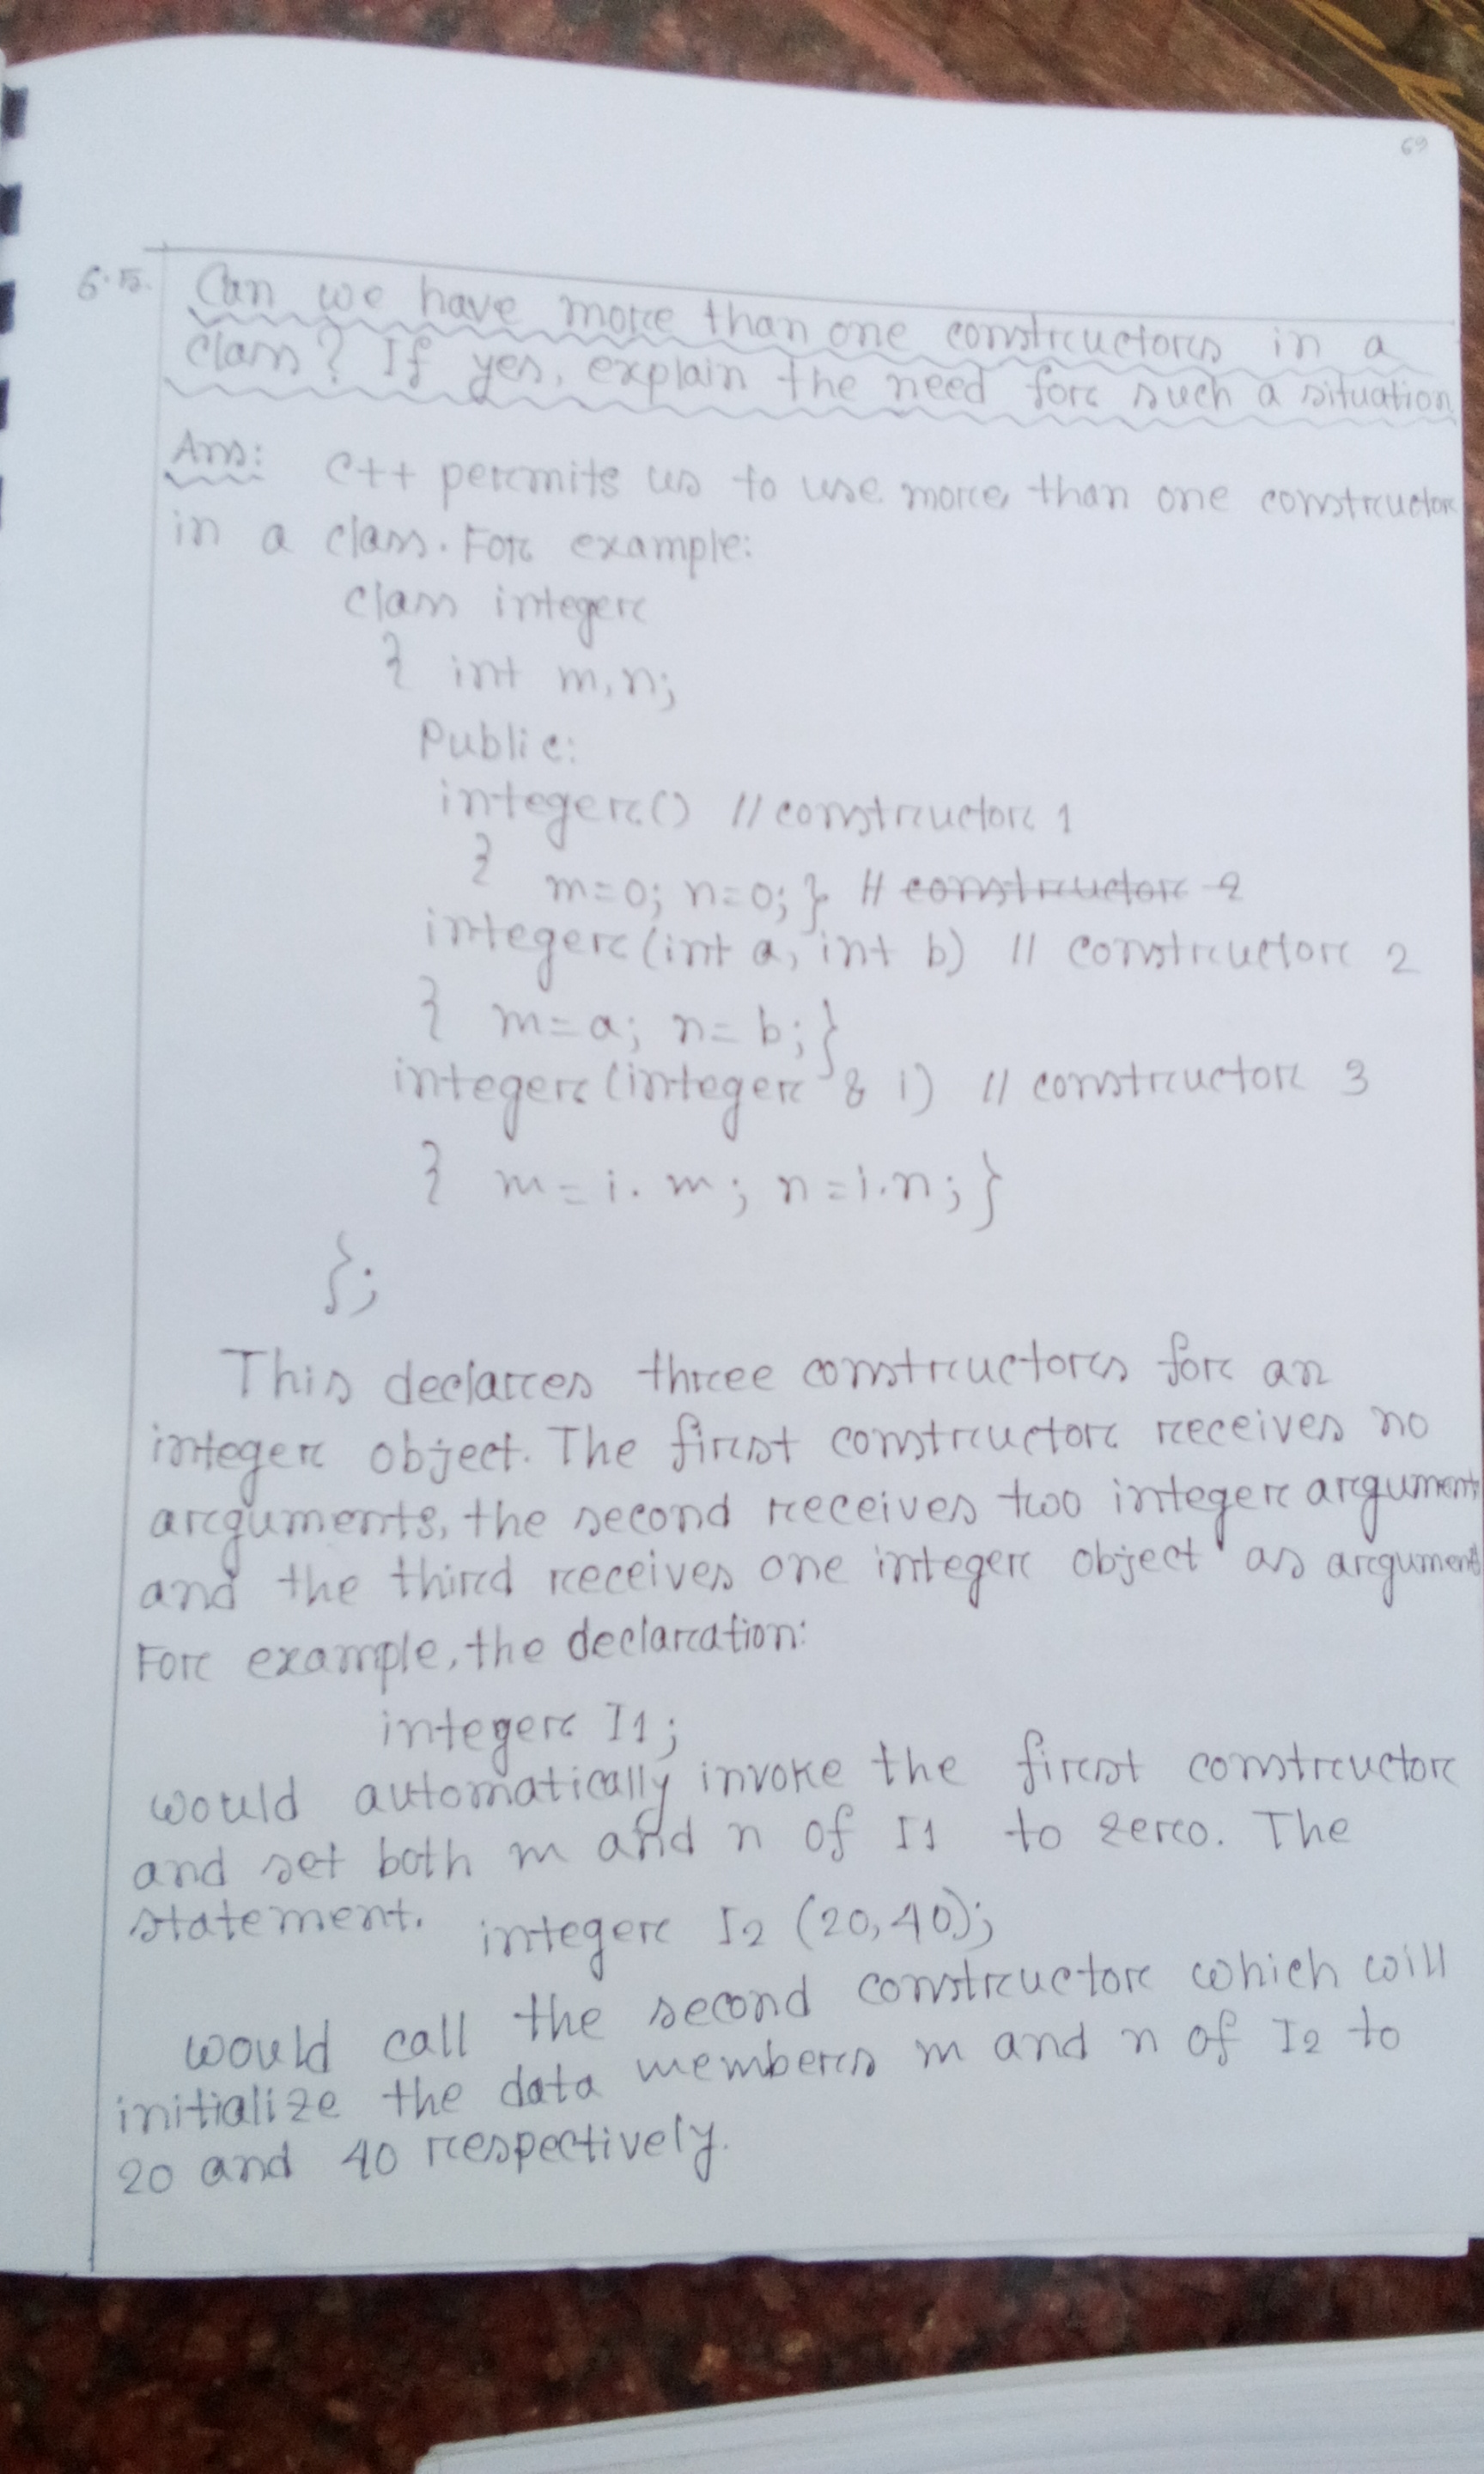 69
6.15. Can we have more than one constructors in a
class? If yes, explain the need for such a situation
Ans: C++ permits us to use more than one constructor
in a class. For example:
class integer
{ int m,n;
Public:
integer() // constructor 1
{
m=0; n=0; } // constructor 2
integer(int a, int b) // constructor 2
{ m=a; n=b; }
integer(integer & i) // constructor 3
{ m=i.m; n=i.n; }
};
This declares three constructors for an
integer object. The first constructor receives no
arguments, the second receives two integer argument
and the third receives one integer object as argument
For example, the declaration:
integer I1;
would automatically invoke the first constructor
and set both m and n of I1 to zero. The
statement. integer I2 (20,40);
would call the second constructor which will
initialize the data members m and n of I2 to
20 and 40 respectively.